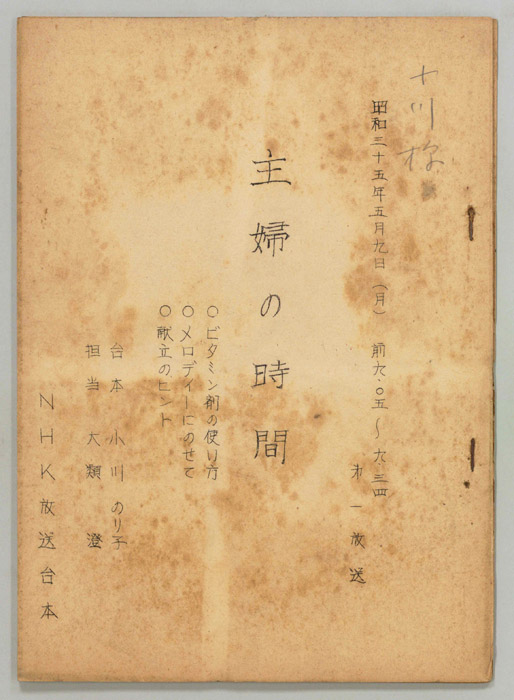 小川様
昭和三十五年五月九日(月) 前九.〇五〜九.三四
才一放送
主婦の時間
○ビタミン剤の使い方
○メロディーにのせて
○献立のヒント
台本 小川 のり子
担当 大類 澄
NHK放送台本